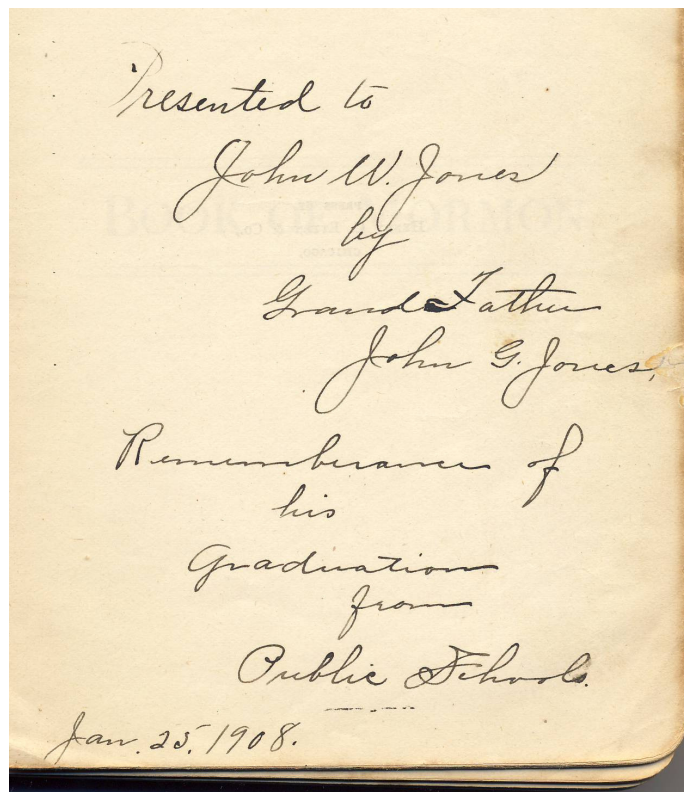 Presented to
John W. Jones
by
Grand Father
John G. Jones,
Rememberance of
his
Graduation
from
Public Schools.
Jan. 25, 1908.
BOOK OF MORMON